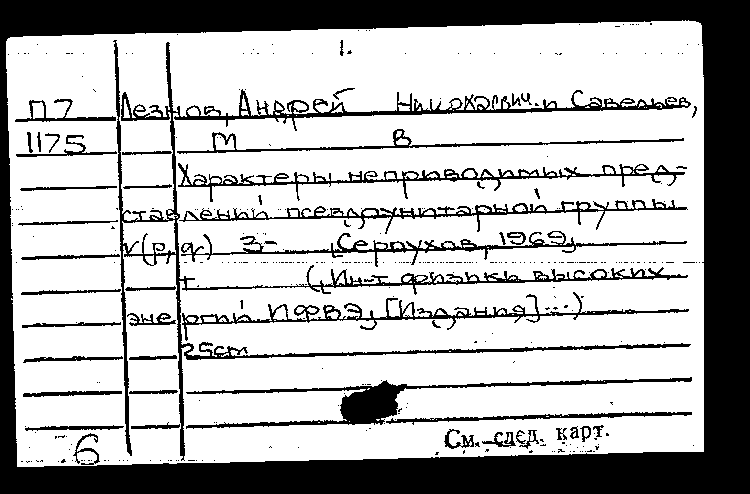 1.
П7 Лезнов, Андрей Николаевич и Савельев,
1175 М В
Характеры неприводимых пред-
ставлений псевдоунитарной группы
v(p, q) 3- [Серпухов, 1969]
т ([Ин-т физики высоких
энергий ИФВЭ, [Издания] ...)
25cm
6 См. след. карт.